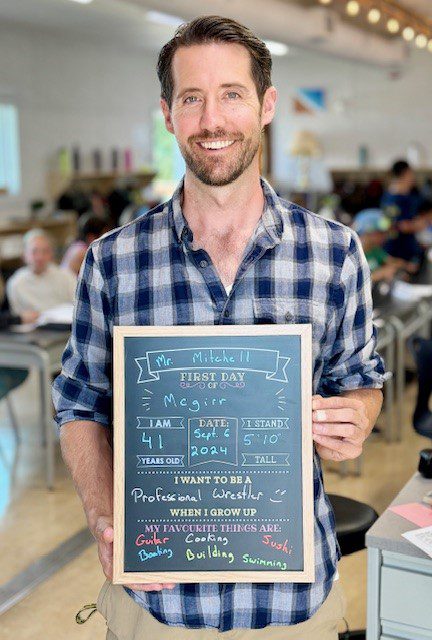 Mr. Mitchell
FIRST DAY
OF
Mcgirr
I AM
41
YEARS OLD
DATE:
Sept. 6
2024
I STAND
5'10"
TALL
I WANT TO BE A
Professional Wrestler
WHEN I GROW UP
MY FAVOURITE THINGS ARE:
Guitar Cooking Sushi
Boating Building Swimming